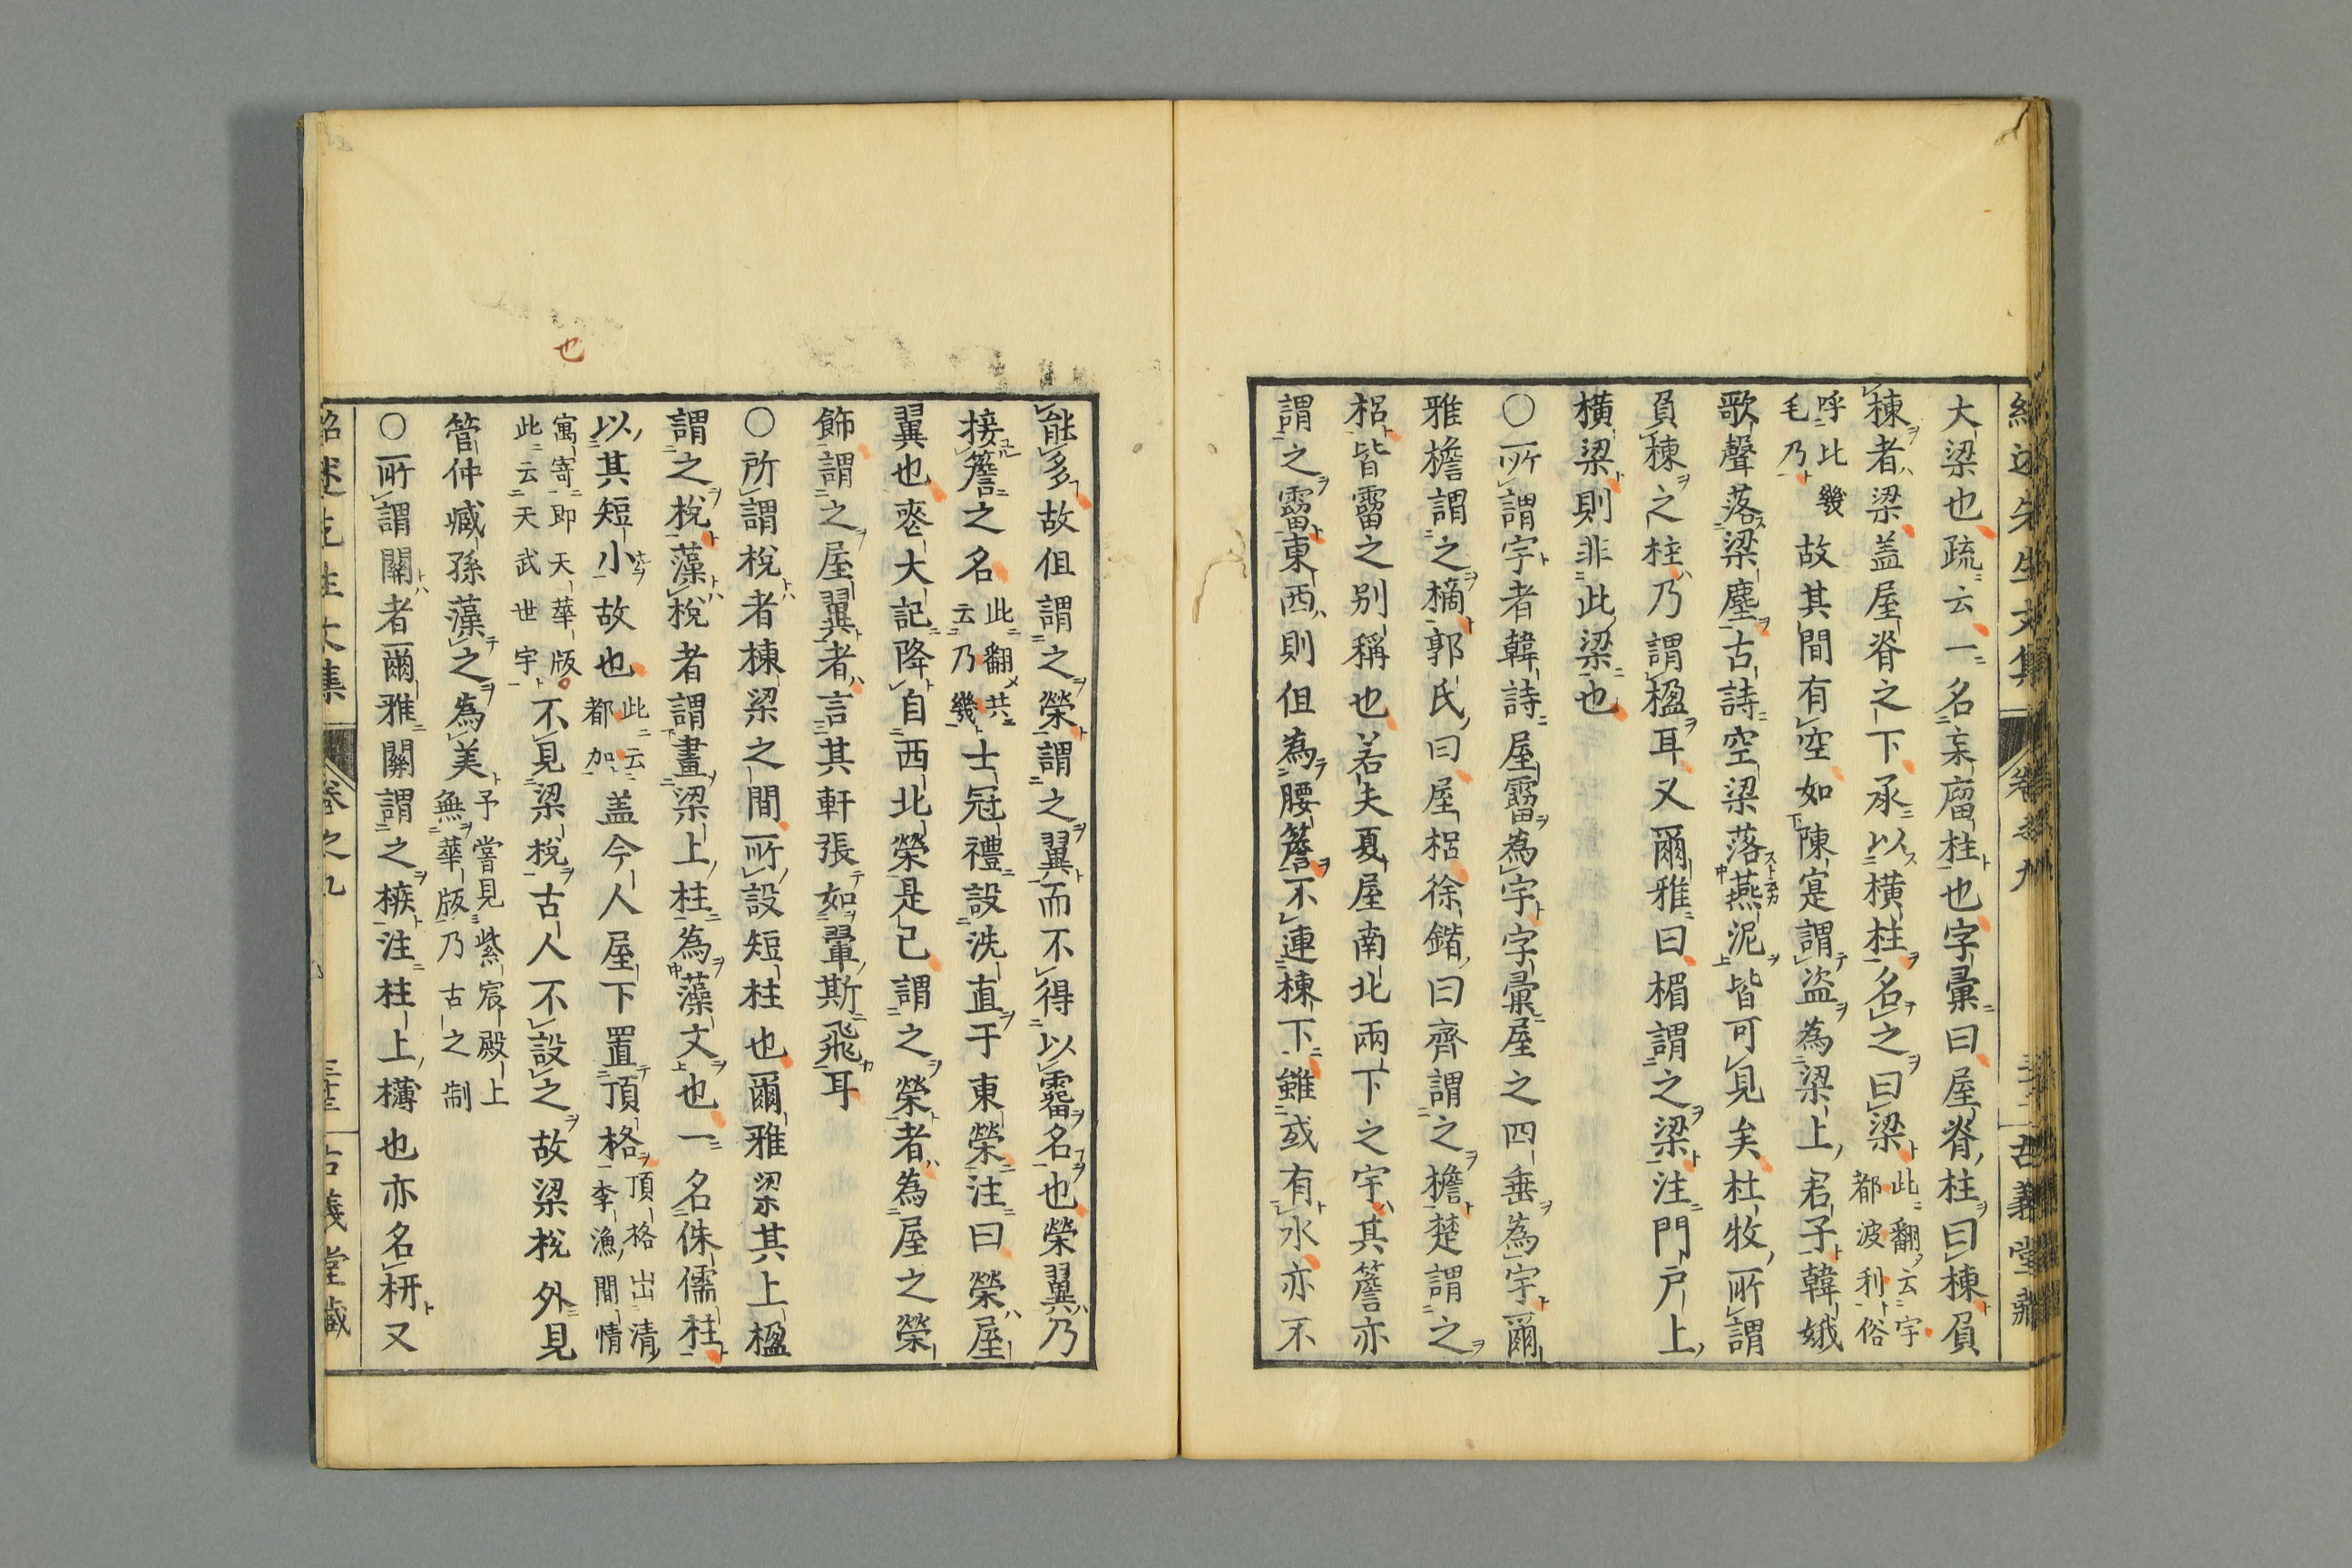 大梁也疏云一名杗廇柱也字彙曰屋脊柱曰棟負
棟者梁盖屋脊之下承以横柱名之曰梁此翻云宇都波利俗
呼比毛乃幾故其間有空如陳寔謂盗為梁上君子韓娥
歌聲落梁塵古詩空梁落燕泥皆可見矣杜牧所謂
負棟之柱乃謂楹耳又爾雅曰楣謂之梁注門戸上
横梁則非此梁也
〇所謂宇者韓詩屋霤為宇字彙屋之四垂為宇爾
雅檐謂之樀郭氏曰屋梠徐鍇曰齊謂之檐楚謂之
梠皆霤之别稱也若夫夏屋南北兩下之宇其簷亦
謂之霤東西則但為腰簷不連棟下雖或有水亦不
能多故但謂之榮謂之翼而不得以霤名也榮翼乃
接簷之名此翻共云乃幾士冠禮設洗直于東榮注曰榮屋
翼也喪大記降自西北榮是已謂之榮者為屋之榮
飾謂之屋翼者言其軒張如翬斯飛耳
〇所謂梲者棟梁之間所設短柱也爾雅梁其上楹
謂之梲藻梲者謂畫梁上柱為藻文也一名侏儒柱
以其短小故也此云都加盖今人屋下置頂格頂格出清李漁間情
寓寄即天華版此云天武世宇不見梁梲古人不設之故梁梲外見
管仲臧孫藻之為美予嘗見紫宸殿上無華版乃古之制
〇所謂關者爾雅關謂之槉注柱上欂也亦名枅又
也
卷之九
古義堂藏